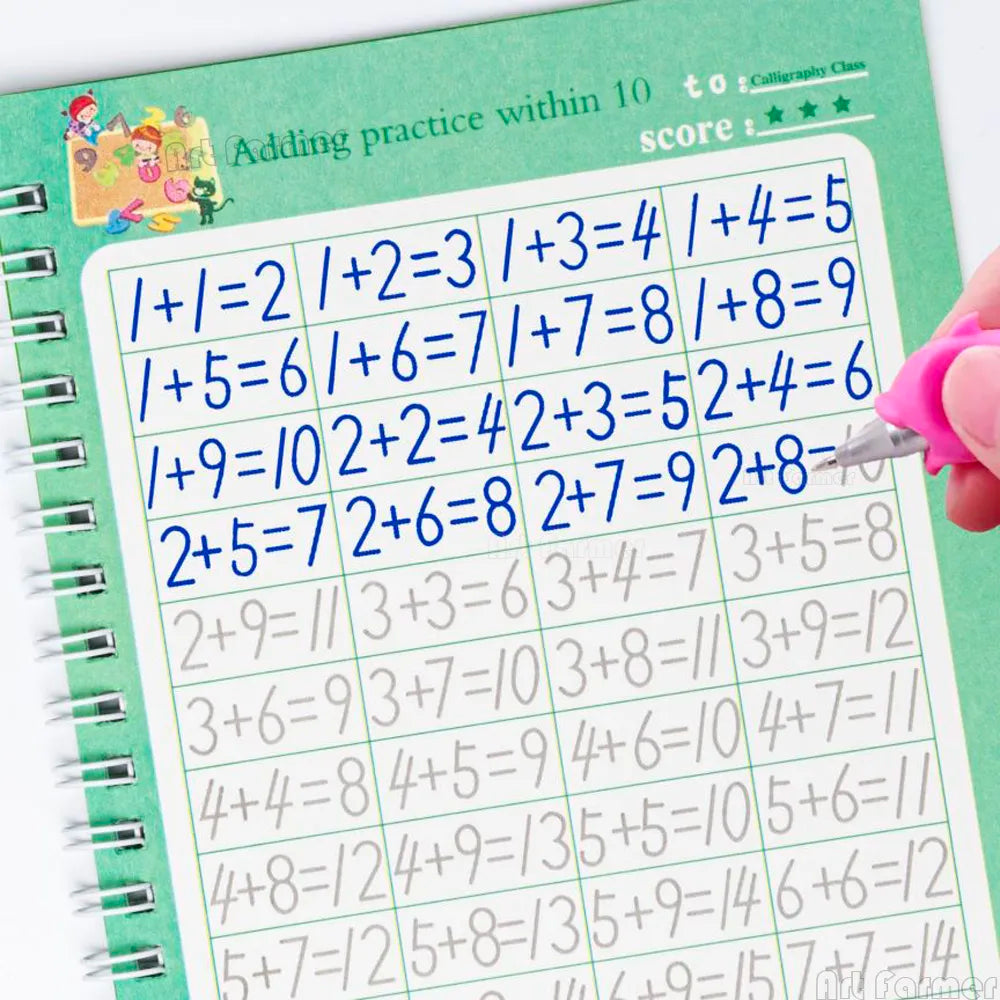 Adding practice within 10
to : Calligraphy Class
score :
1+1=2 1+2=3 1+3=4 1+4=5
1+5=6 1+6=7 1+7=8 1+8=9
1+9=10 2+2=4 2+3=5 2+4=6
2+5=7 2+6=8 2+7=9 2+8=10
2+9=11 3+3=6 3+4=7 3+5=8
3+6=9 3+7=10 3+8=11 3+9=12
4+4=8 4+5=9 4+6=10 4+7=11
4+8=12 4+9=13 5+5=10 5+6=11
5+7=12 5+8=13 5+9=14 6+6=12
7+7=14
Art Farmer
Art Farmer
Art Farmer
Art Farmer